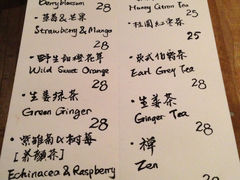 Berry Blossom
28
蓝莓&芒果
Strawberry & Mango
28
野生甜橙花草
Wild Sweet Orange
28
生姜绿茶
Green Ginger
28
紫雏菊&树莓
[养颜茶]
Echinacea & Raspberry
Honey Citron Tea
28
桂圆红枣茶
25
英式伯爵茶
Earl Grey Tea
28
生姜茶
Ginger Tea
28
禅
Zen